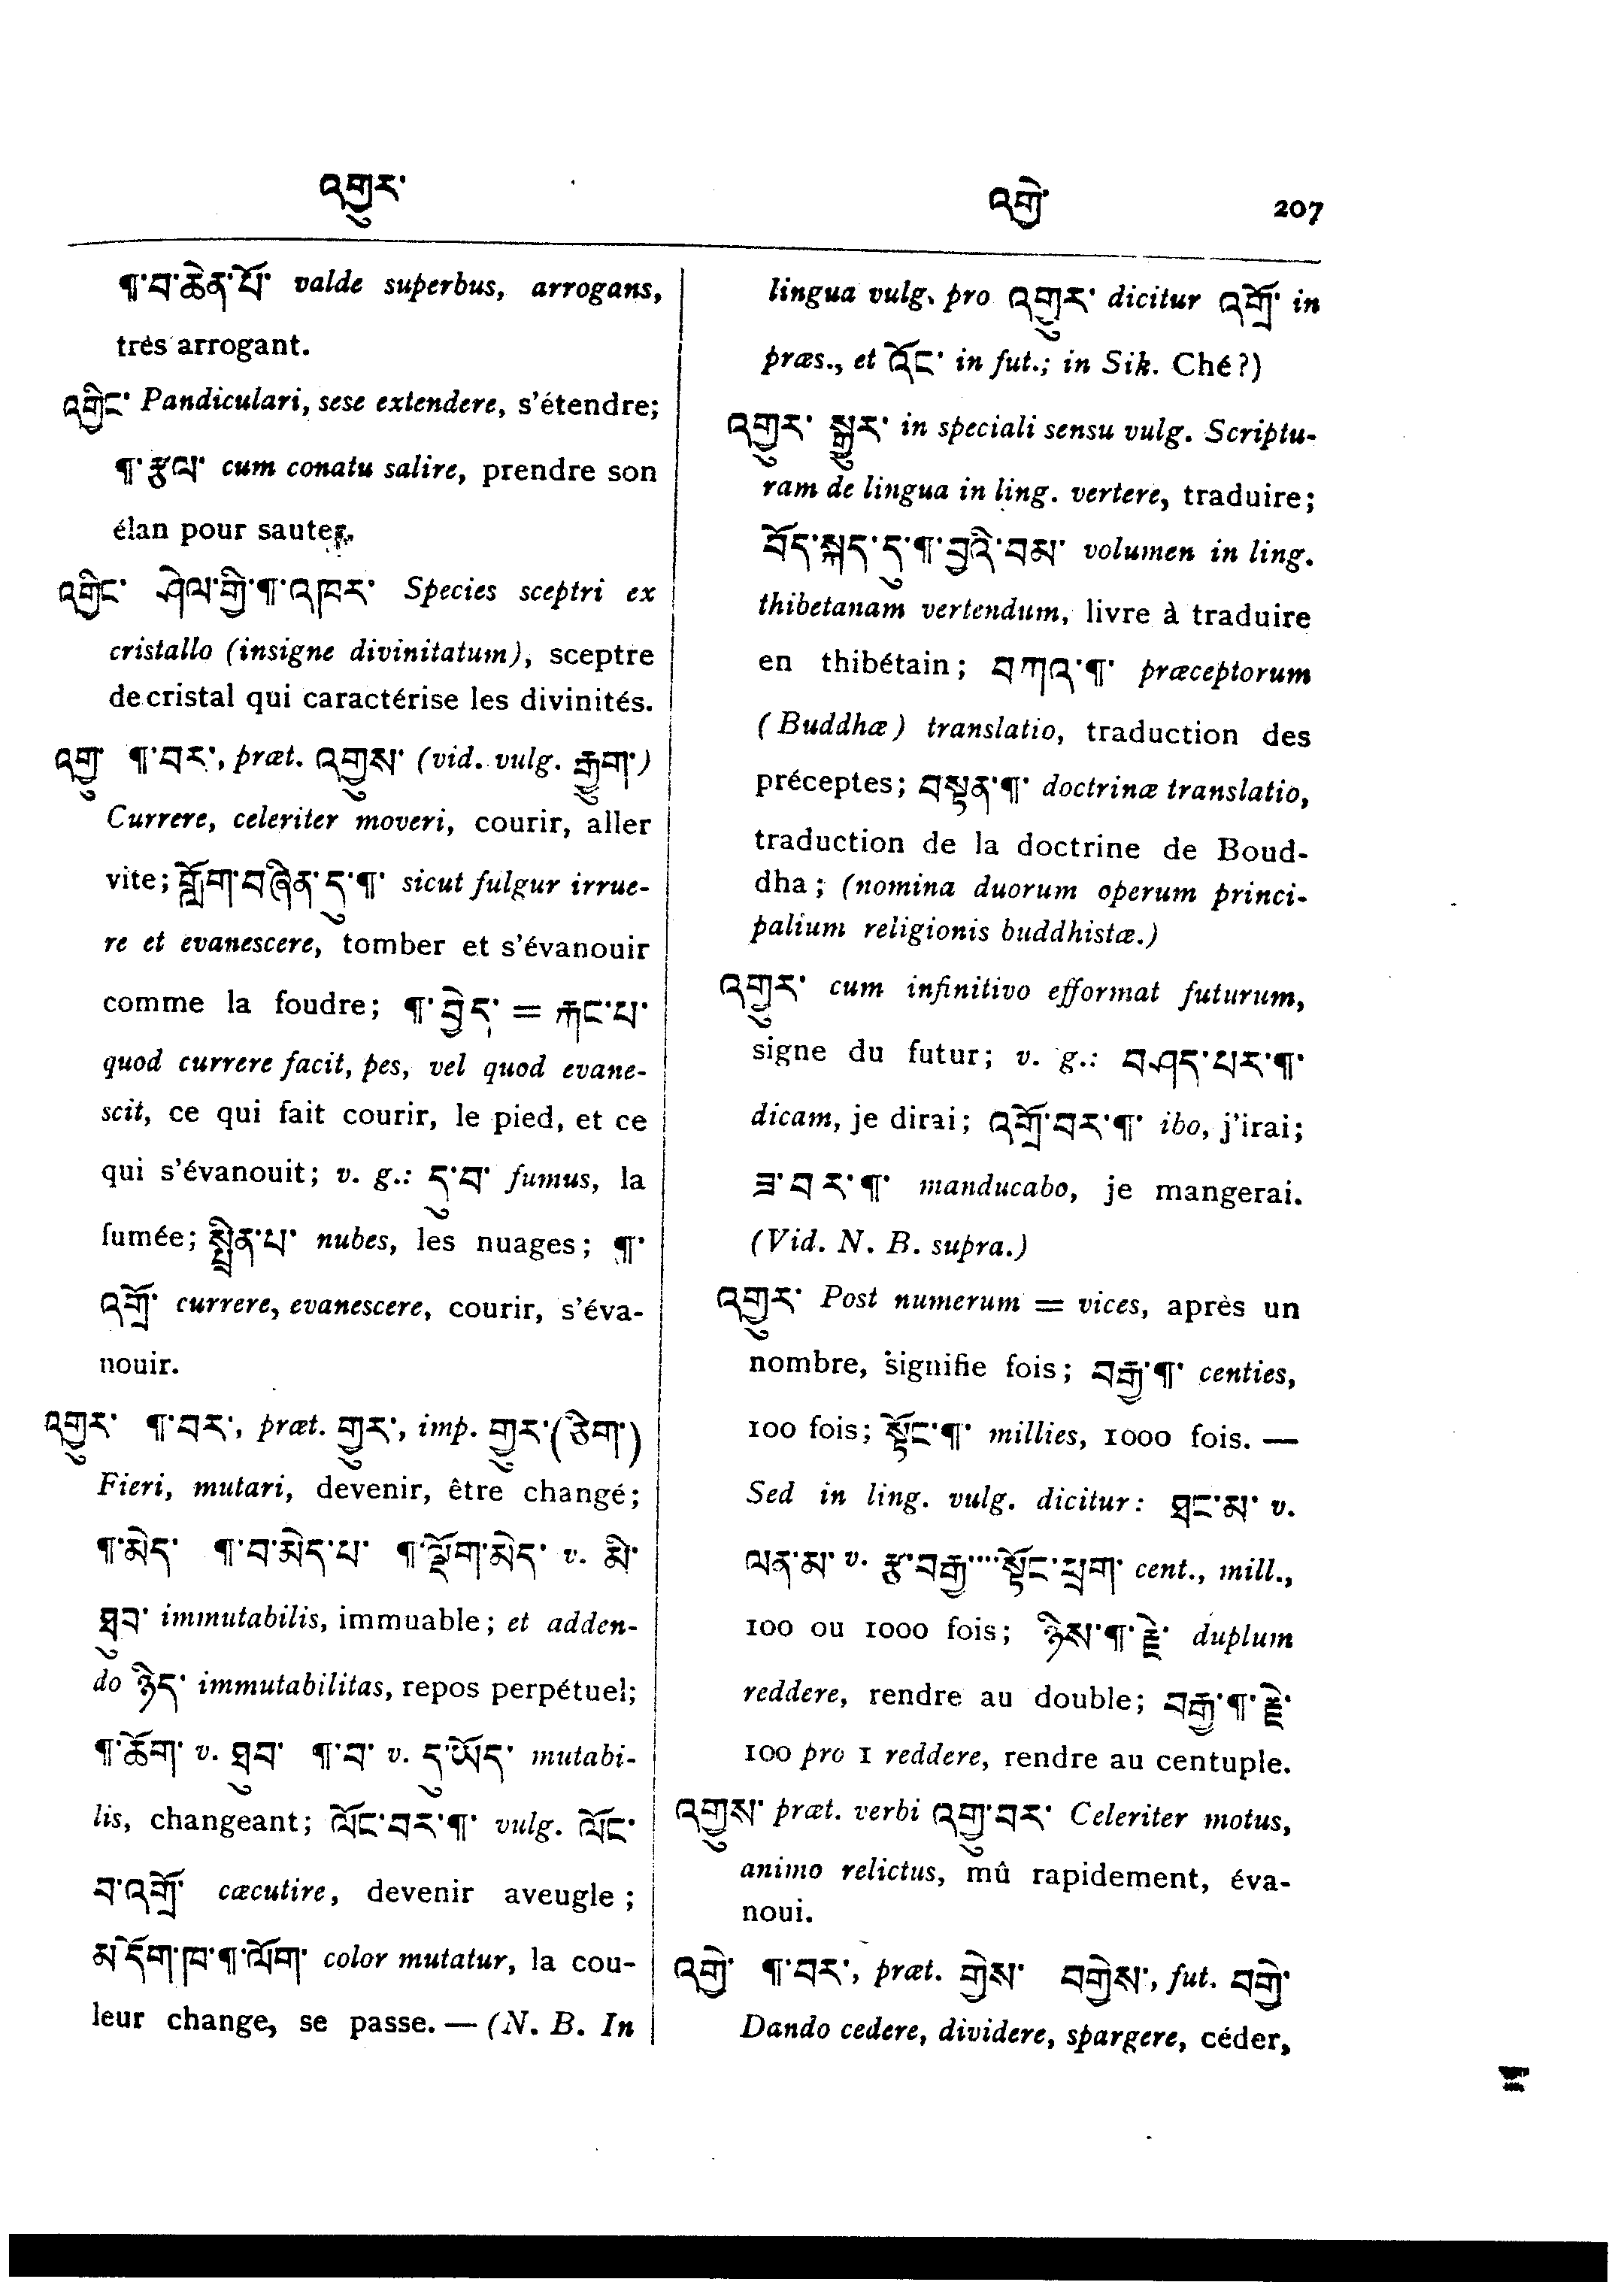 འགྱུར་
འགྱེ་ 207
¶་བ་ཆེན་པོ་ valde superbus, arrogans,
très arrogant.
འགྱིང་ Pandiculari, sese extendere, s'étendre;
¶་རྩལ་ cum conatu salire, prendre son
élan pour sauter.
འགྱིང་ ཤེལ་གྱི་¶་འཁར་ Species sceptri ex
cristallo (insigne divinitatum), sceptre
de cristal qui caractérise les divinités.
འགྱུ་ ¶་བར་, præt. འགྱུས་ (vid. vulg. རྒྱུག་)
Currere, celeriter moveri, courir, aller
vite; གློག་བཞིན་དུ་¶་ sicut fulgur irrue-
re et evanescere, tomber et s'évanouir
comme la foudre; ¶་བྱེད་ = རྐང་པ་
quod currere facit, pes, vel quod evane-
scit, ce qui fait courir, le pied, et ce
qui s'évanouit; v. g.: དུ་བ་ fumus, la
fumée; སྤྲིན་པ་ nubes, les nuages; ¶་
འགྲོ་ currere, evanescere, courir, s'éva-
nouir.
འགྱུར་ ¶་བར་, præt. གྱུར་, imp. གྱུར་(ཅིག་)
Fieri, mutari, devenir, être changé;
¶་མེད་ ¶་བ་མེད་པ་ ¶་ལྡོག་མེད་ v. མི་
ཐུབ་ immutabilis, immuable; et adden-
do ཉིད་ immutabilitas, repos perpétuel;
¶་ཆོག་ v. ཐུབ་ ¶་བ་ v. དུ་ཡོད་ mutabi-
lis, changeant; ལོང་བར་¶་ vulg. ལོང་
བ་འགྲོ་ cæcutire, devenir aveugle;
མདོག་ཁ་¶་ལོག་ color mutatur, la cou-
leur change, se passe. — (N. B. In
lingua vulg. pro འགྱུར་ dicitur འགྲོ་ in
præs., et འོང་ in fut.; in Sik. Ché?)
འགྱུར་ སྒྱུར་ in speciali sensu vulg. Scriptu-
ram de lingua in ling. vertere, traduire;
བོད་སྐད་དུ་¶་བྱའི་བམ་ volumen in ling.
thibetanam vertendum, livre à traduire
en thibétain; བཀའ་¶་ præceptorum
(Buddhæ) translatio, traduction des
préceptes; བསྟན་¶་ doctrinæ translatio,
traduction de la doctrine de Boud-
dha; (nomina duorum operum princi-
palium religionis buddhistæ.)
འགྱུར་ cum infinitivo efformat futurum,
signe du futur; v. g.: བཤད་པར་¶་
dicam, je dirai; འགྲོ་བར་¶་ ibo, j'irai;
ཟ་བར་¶་ manducabo, je mangerai.
(Vid. N. B. supra.)
འགྱུར་ Post numerum = vices, après un
nombre, signifie fois; བརྒྱ་¶་ centies,
100 fois; སྟོང་¶་ millies, 1000 fois. —
Sed in ling. vulg. dicitur: ཐང་མ་ v.
ལན་མ་ v. རྩ་བརྒྱ་...་སྟོང་ཕྲག་ cent., mill.,
100 ou 1000 fois; ཉིས་¶་རྗེ་ duplum
reddere, rendre au double; བརྒྱ་¶་རྗེ་
100 pro 1 reddere, rendre au centuple.
འགྱུས་ præt. verbi འགྱུ་བར་ Celeriter motus,
animo relictus, mû rapidement, éva-
noui.
འགྱེ་ ¶་བར་, præt. གྱེས་ བགྱེས་, fut. བགྱེ་
Dando cedere, dividere, spargere, céder,